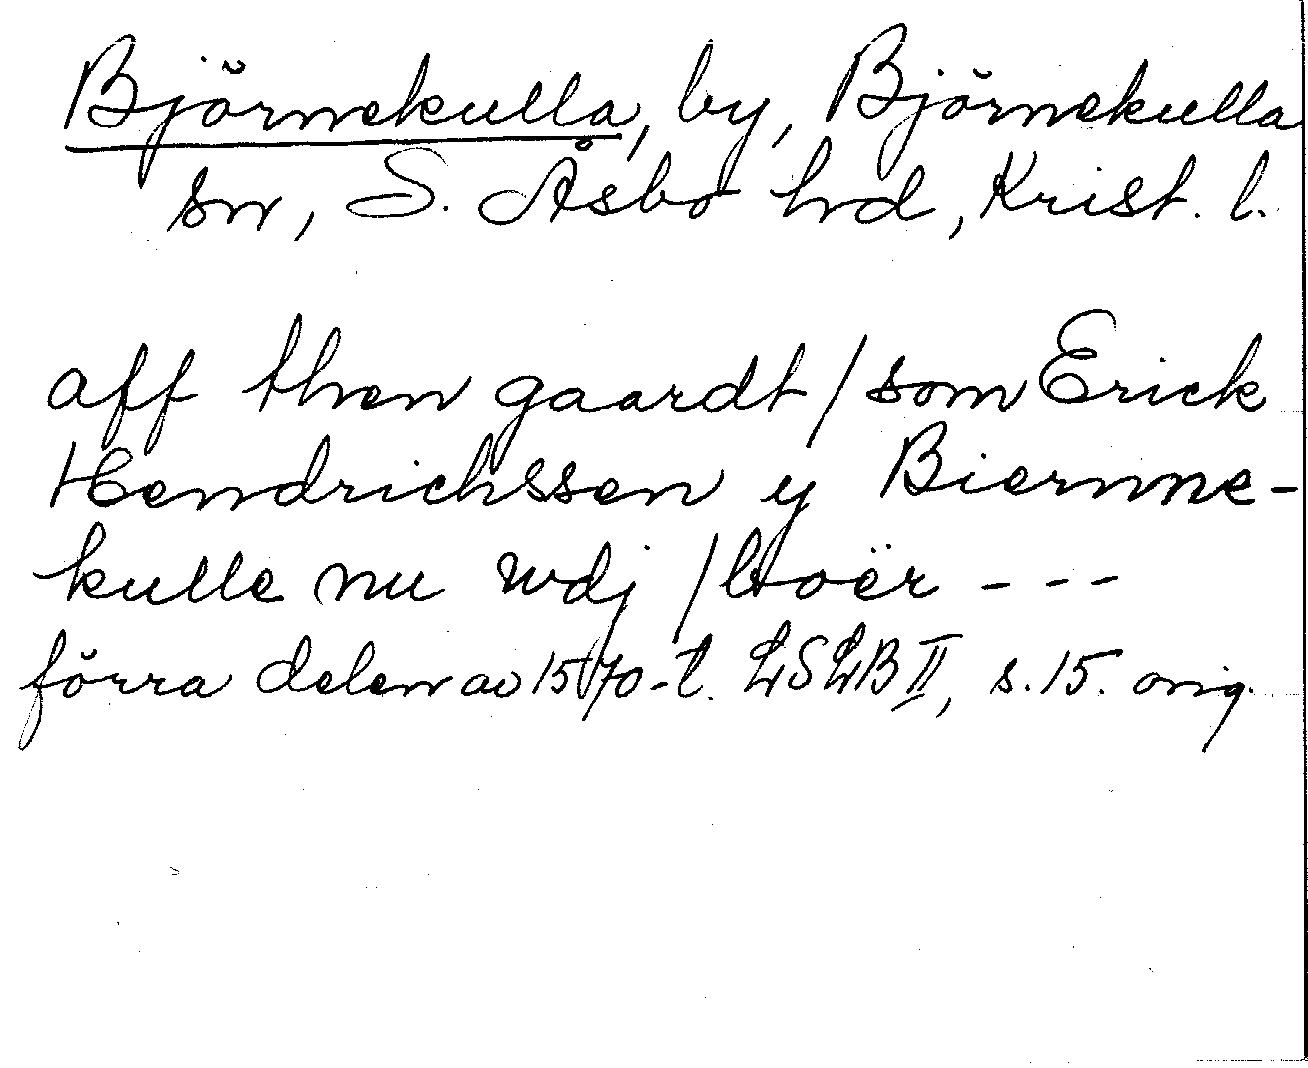 Björnekulla, by, Björnekulla
sn, S. Åsbo hd, Krist. l.
aff then gaardt / som Erick
Hendrichssen y Biernne-
kulle nu wdj / boër - - -
förra delen av 1570-t. LSLB II, s. 15. orig.